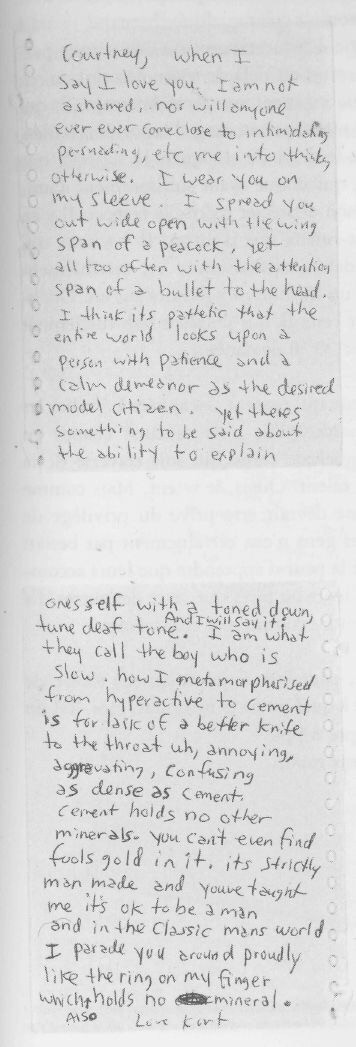 Courtney, when I
say I love you I am not
ashamed, nor will anyone
ever ever come close to intimidating
persuading, etc me into thinking
otherwise. I wear you on
my sleeve. I spread you
out wide open with the wing
span of a peacock, yet
all too often with the attention
span of a bullet to the head.
I think its pathetic that the
entire world looks upon a
person with patience and a
calm demeanor as the desired
model citizen. yet theres
something to be said about
the ability to explain
ones self with a toned down,
tune deaf tone. And I will say it: I am what
they call the boy who is
slow. how I metamorphesised
from hyperactive to cement
is for lack of a better knife
to the throat uh, annoying,
aggrevating, confusing
as dense as cement.
cement holds no other
minerals. you can't even find
fools gold in it. its strictly
man made and youve taught
me it's ok to be a man
and in the classic mans world
I parade you around proudly
like the ring on my finger
which also holds no mineral.
Love Kurt